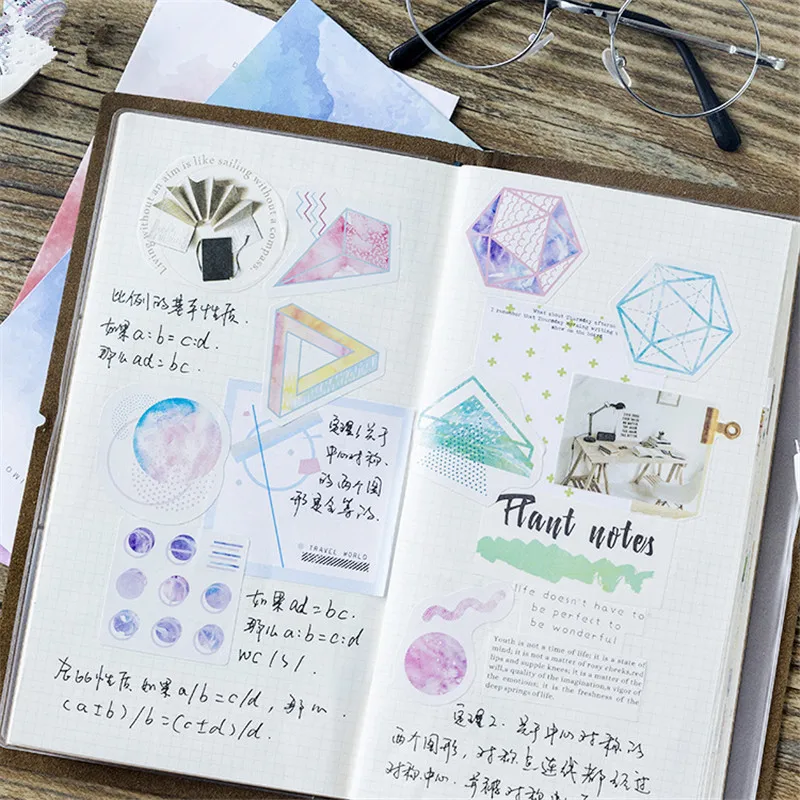 Living without an aim is like sailing without a compass.
比例的基本性质.
如果a:b=c:d.
那么ad=bc.
定理1 关于
中心对称.
的两个图
形是全等的.
TRAVEL WORLD
如果ad=bc.
那么a:b=c:d
合比性质 如果a/b=c/d, 那么.
(a±b)/b=(c±d)/d.
What about Thursday
I remember that Thursday morning writing
show on the board
Plant notes
life doesn't have to
be perfect to
be wonderful
Youth is not a time of life; it is a state of
mind; it is not a matter of rosy cheeks, red
lips and supple knees; it is a matter of the
will, a quality of the imagination, a vigor of
the emotions; it is the freshness of the
deep springs of life.
定理2. 关于中心对称的
两个图形, 对称点连线都经过
对称中心. 并被对称中